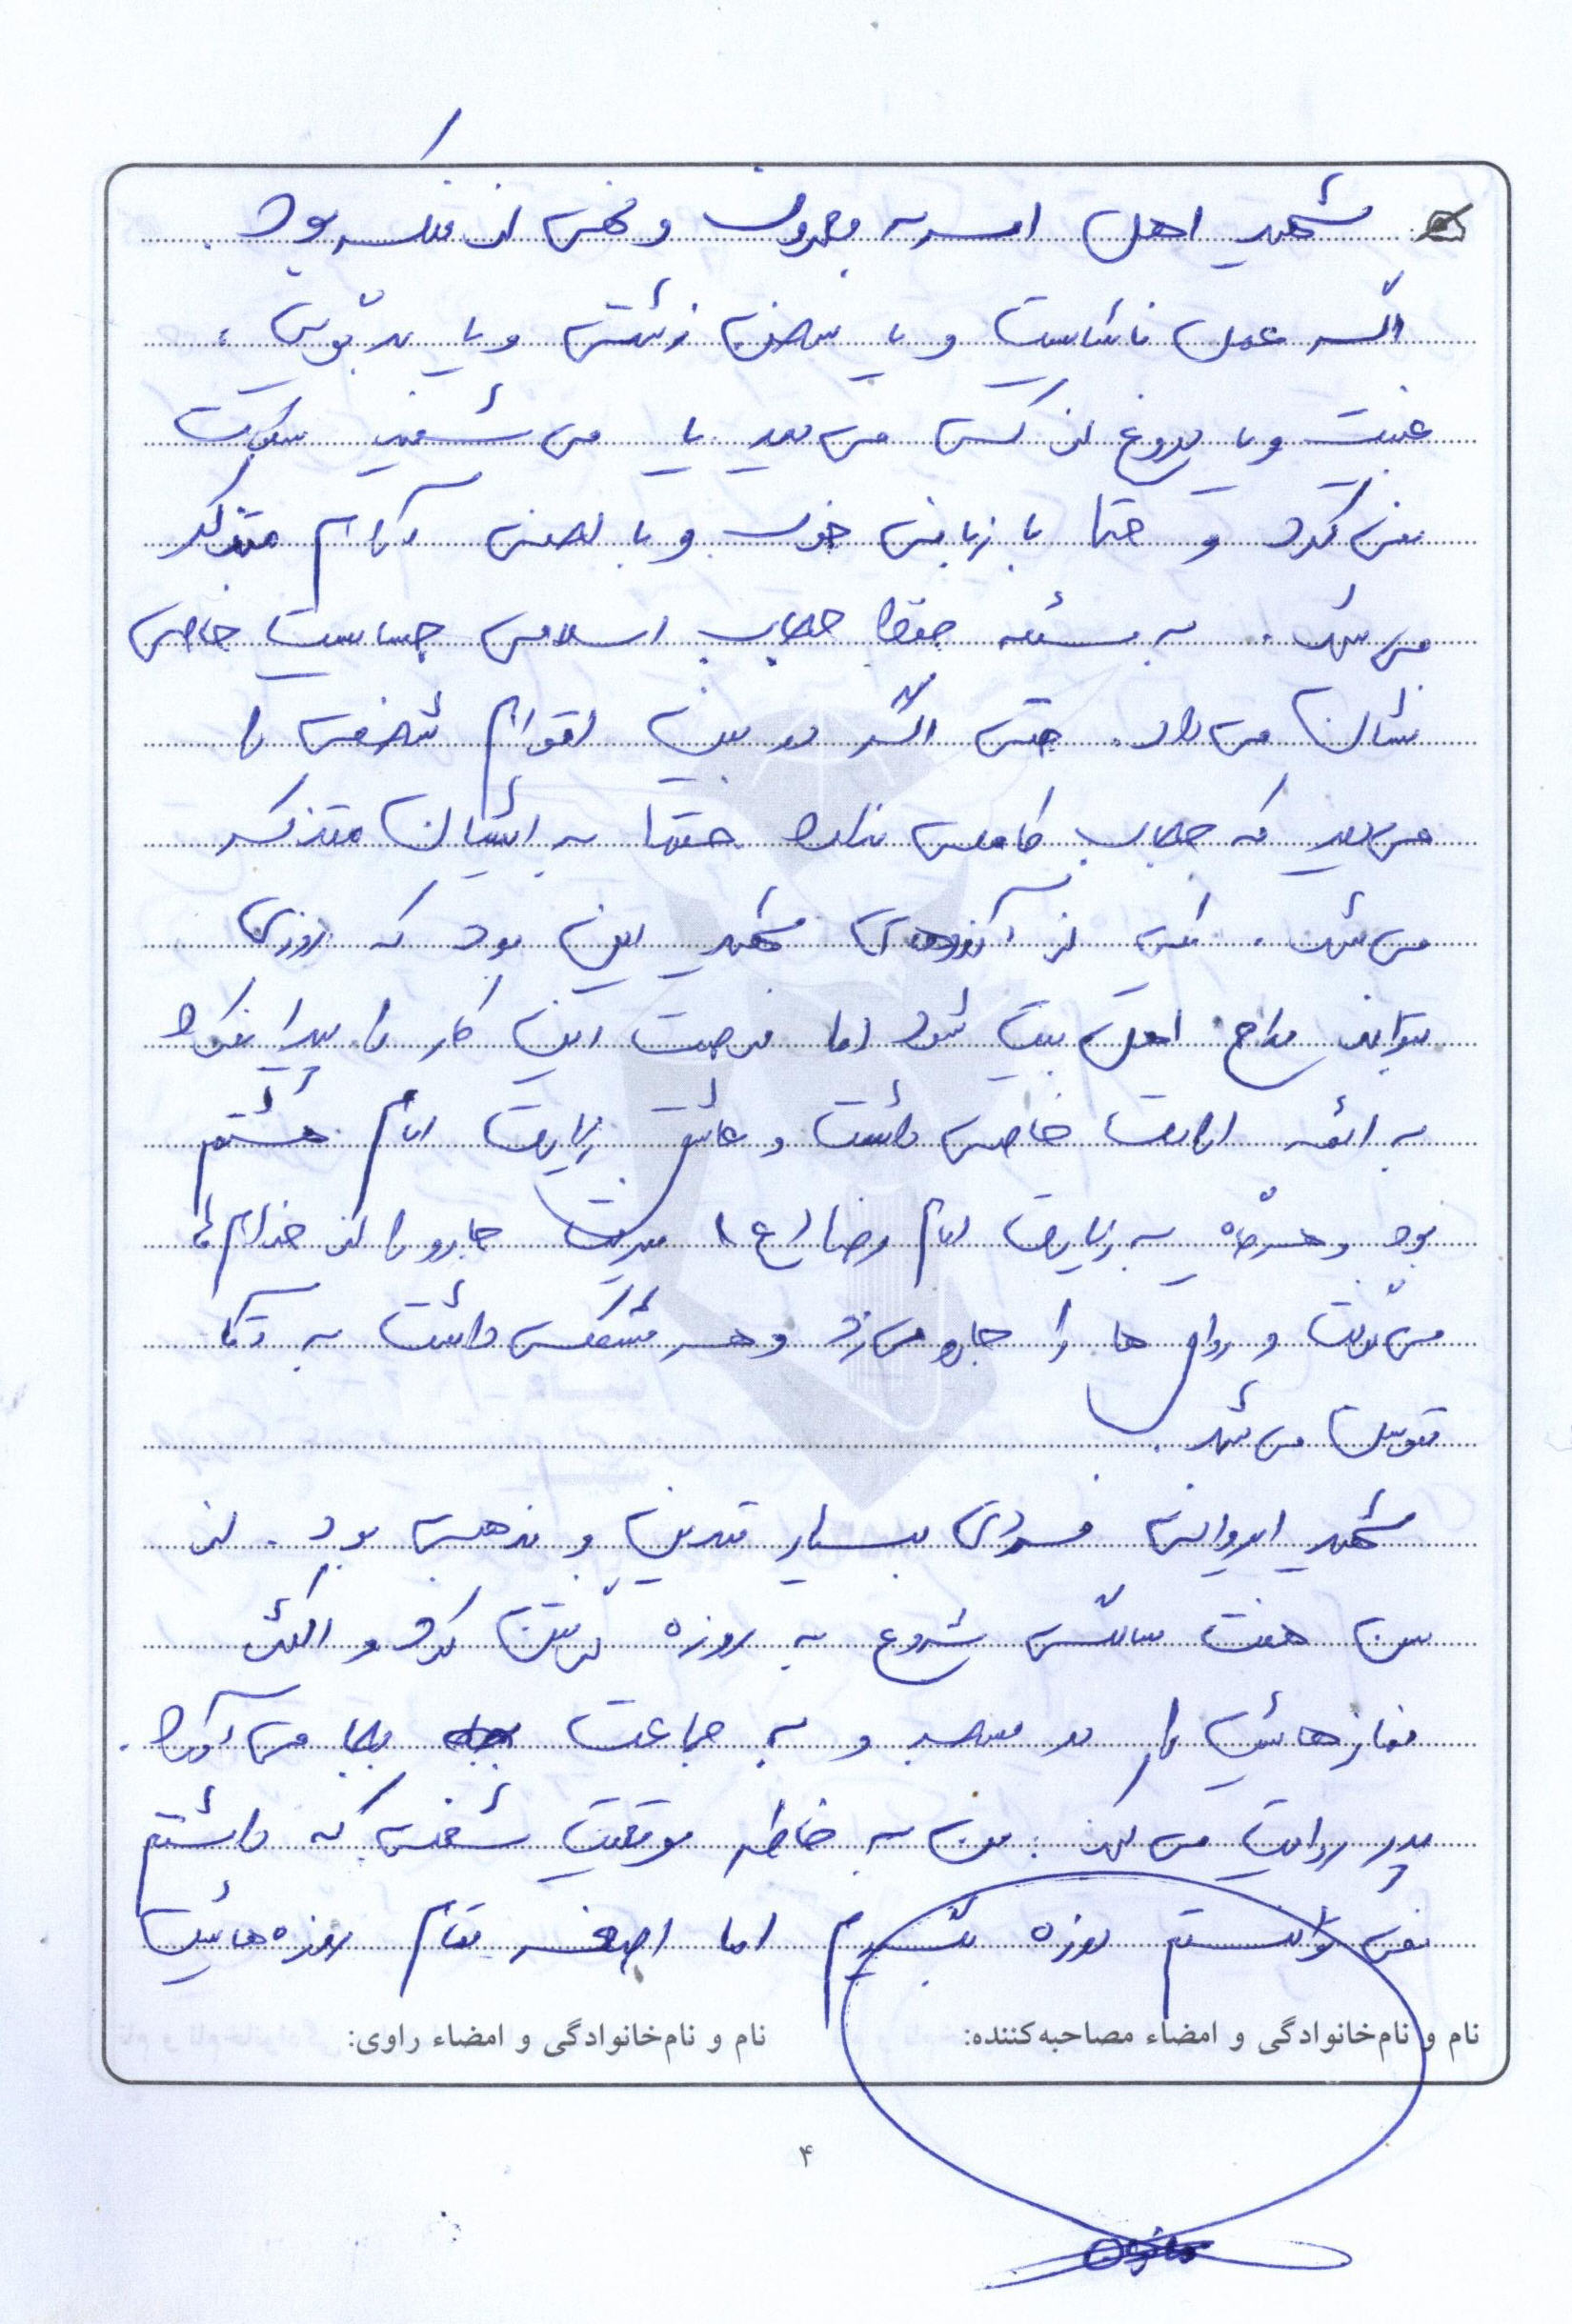 شهید اهل امر به معروف و نهی از منکر بود.
اگر عمل ناشایست و یا سخن زشتی و یا بدگویی ،
غیبت و یا دروغ از کسی می دید یا می شنید سکوت
نمی کرد و حتما با زبانی خوب و با لحنی آرام متذکر
می شد. به مسئله حفظ حجاب اسلامی حساسیت خاصی
نشان می داد. حتی اگر در بین اقوام شخصی را
می دید که حجاب کاملی ندارد حتما به ایشان متذکر
می شد. یکی از آرزوهای شهید این بود که روزی
بتواند مداح اهل بیت شود اما فرصت این کار را پیدا نکرد
به ائمه ارادت خاصی داشت و عاشق زیارت امام هشتم
بود و هرگاه به زیارت امام رضا (ع) میرفت جارو را از خدام ها
می گرفت و رواق ها را جارو می زد و هر مشکلی داشت به آقا
توسل می شد.
شهید ایروانی فردی بسیار متدین و مذهبی بود. از
سن هفت سالگی شروع به روزه گرفتن کرد و اکثر
نمازهایش را در مسجد و به جماعت بجا می آورد.
پدر روایت می کند : من به خاطر موقعیت شغلی که داشتم
نمی توانستم روزه بگیرم اما اصغر تمام روزه هایش
نام و نام‌خانوادگی و امضاء مصاحبه‌کننده: نام و نام‌خانوادگی و امضاء راوی:
۴